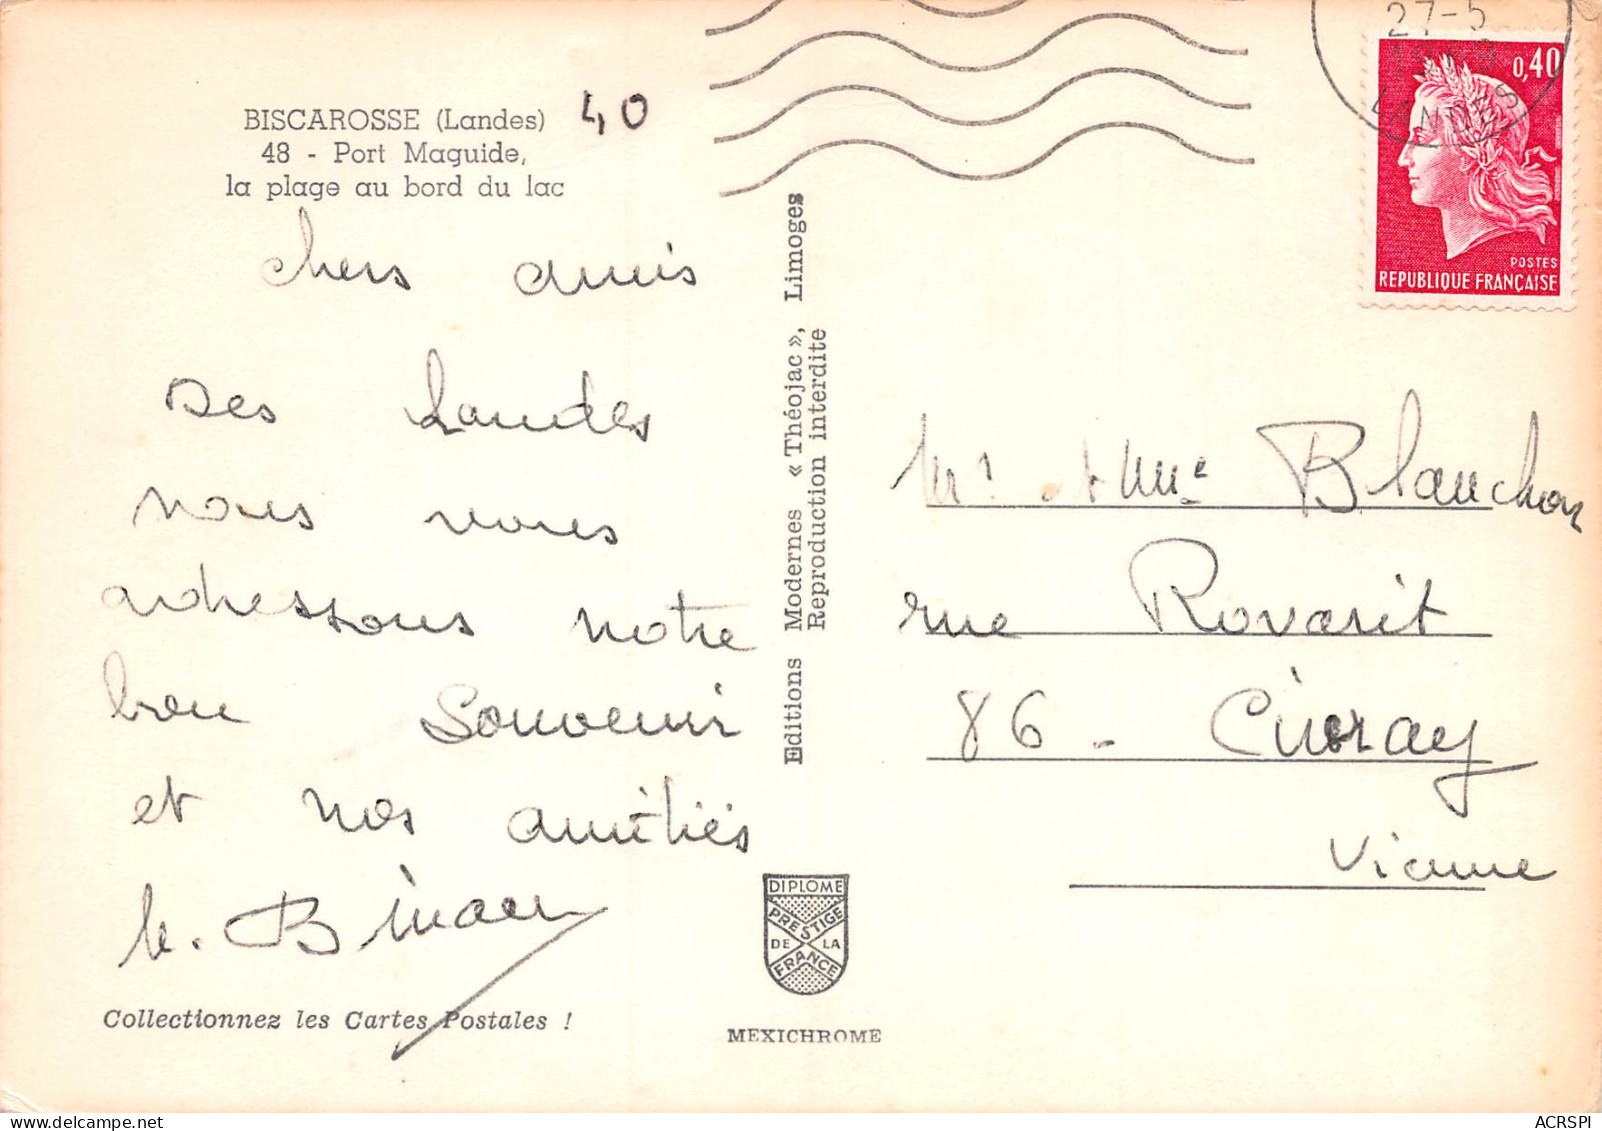 BISCAROSSE (Landes) 40
48 - Port Maguide,
la plage au bord du lac
chers amis
Des Landes
nous vous
adressons notre
bon souvenir
et nos amitiés
Collectionnez les Cartes Postales !
Editions Modernes « Théojac », Limoges
Reproduction interdite
DIPLOME
PRESTIGE
DE LA
FRANCE
MEXICHROME
27-5
LANDES
0,40
POSTES
REPUBLIQUE FRANÇAISE
Mr & Mme Blanchon
rue Rovarit
86 - Civray
Vienne
ACRSPI